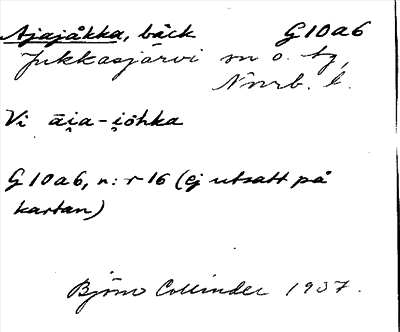 Ajajåkka, bäck G10a6
Jukkasjärvi sn o. tg,
Norrb. l.
Vi āi̯a-i̯ōhka
G10a6, n:r 16 (ej utsatt på
kartan)
Björn Collinder 1937.